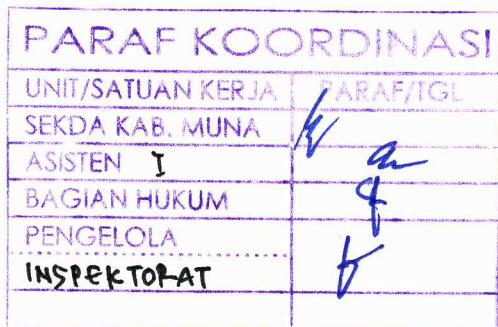 PARAF KOORDINASI
UNIT/SATUAN KERJA PARAF/TGL
SEKDA KAB. MUNA
ASISTEN I
BAGIAN HUKUM
PENGELOLA
INSPEKTORAT